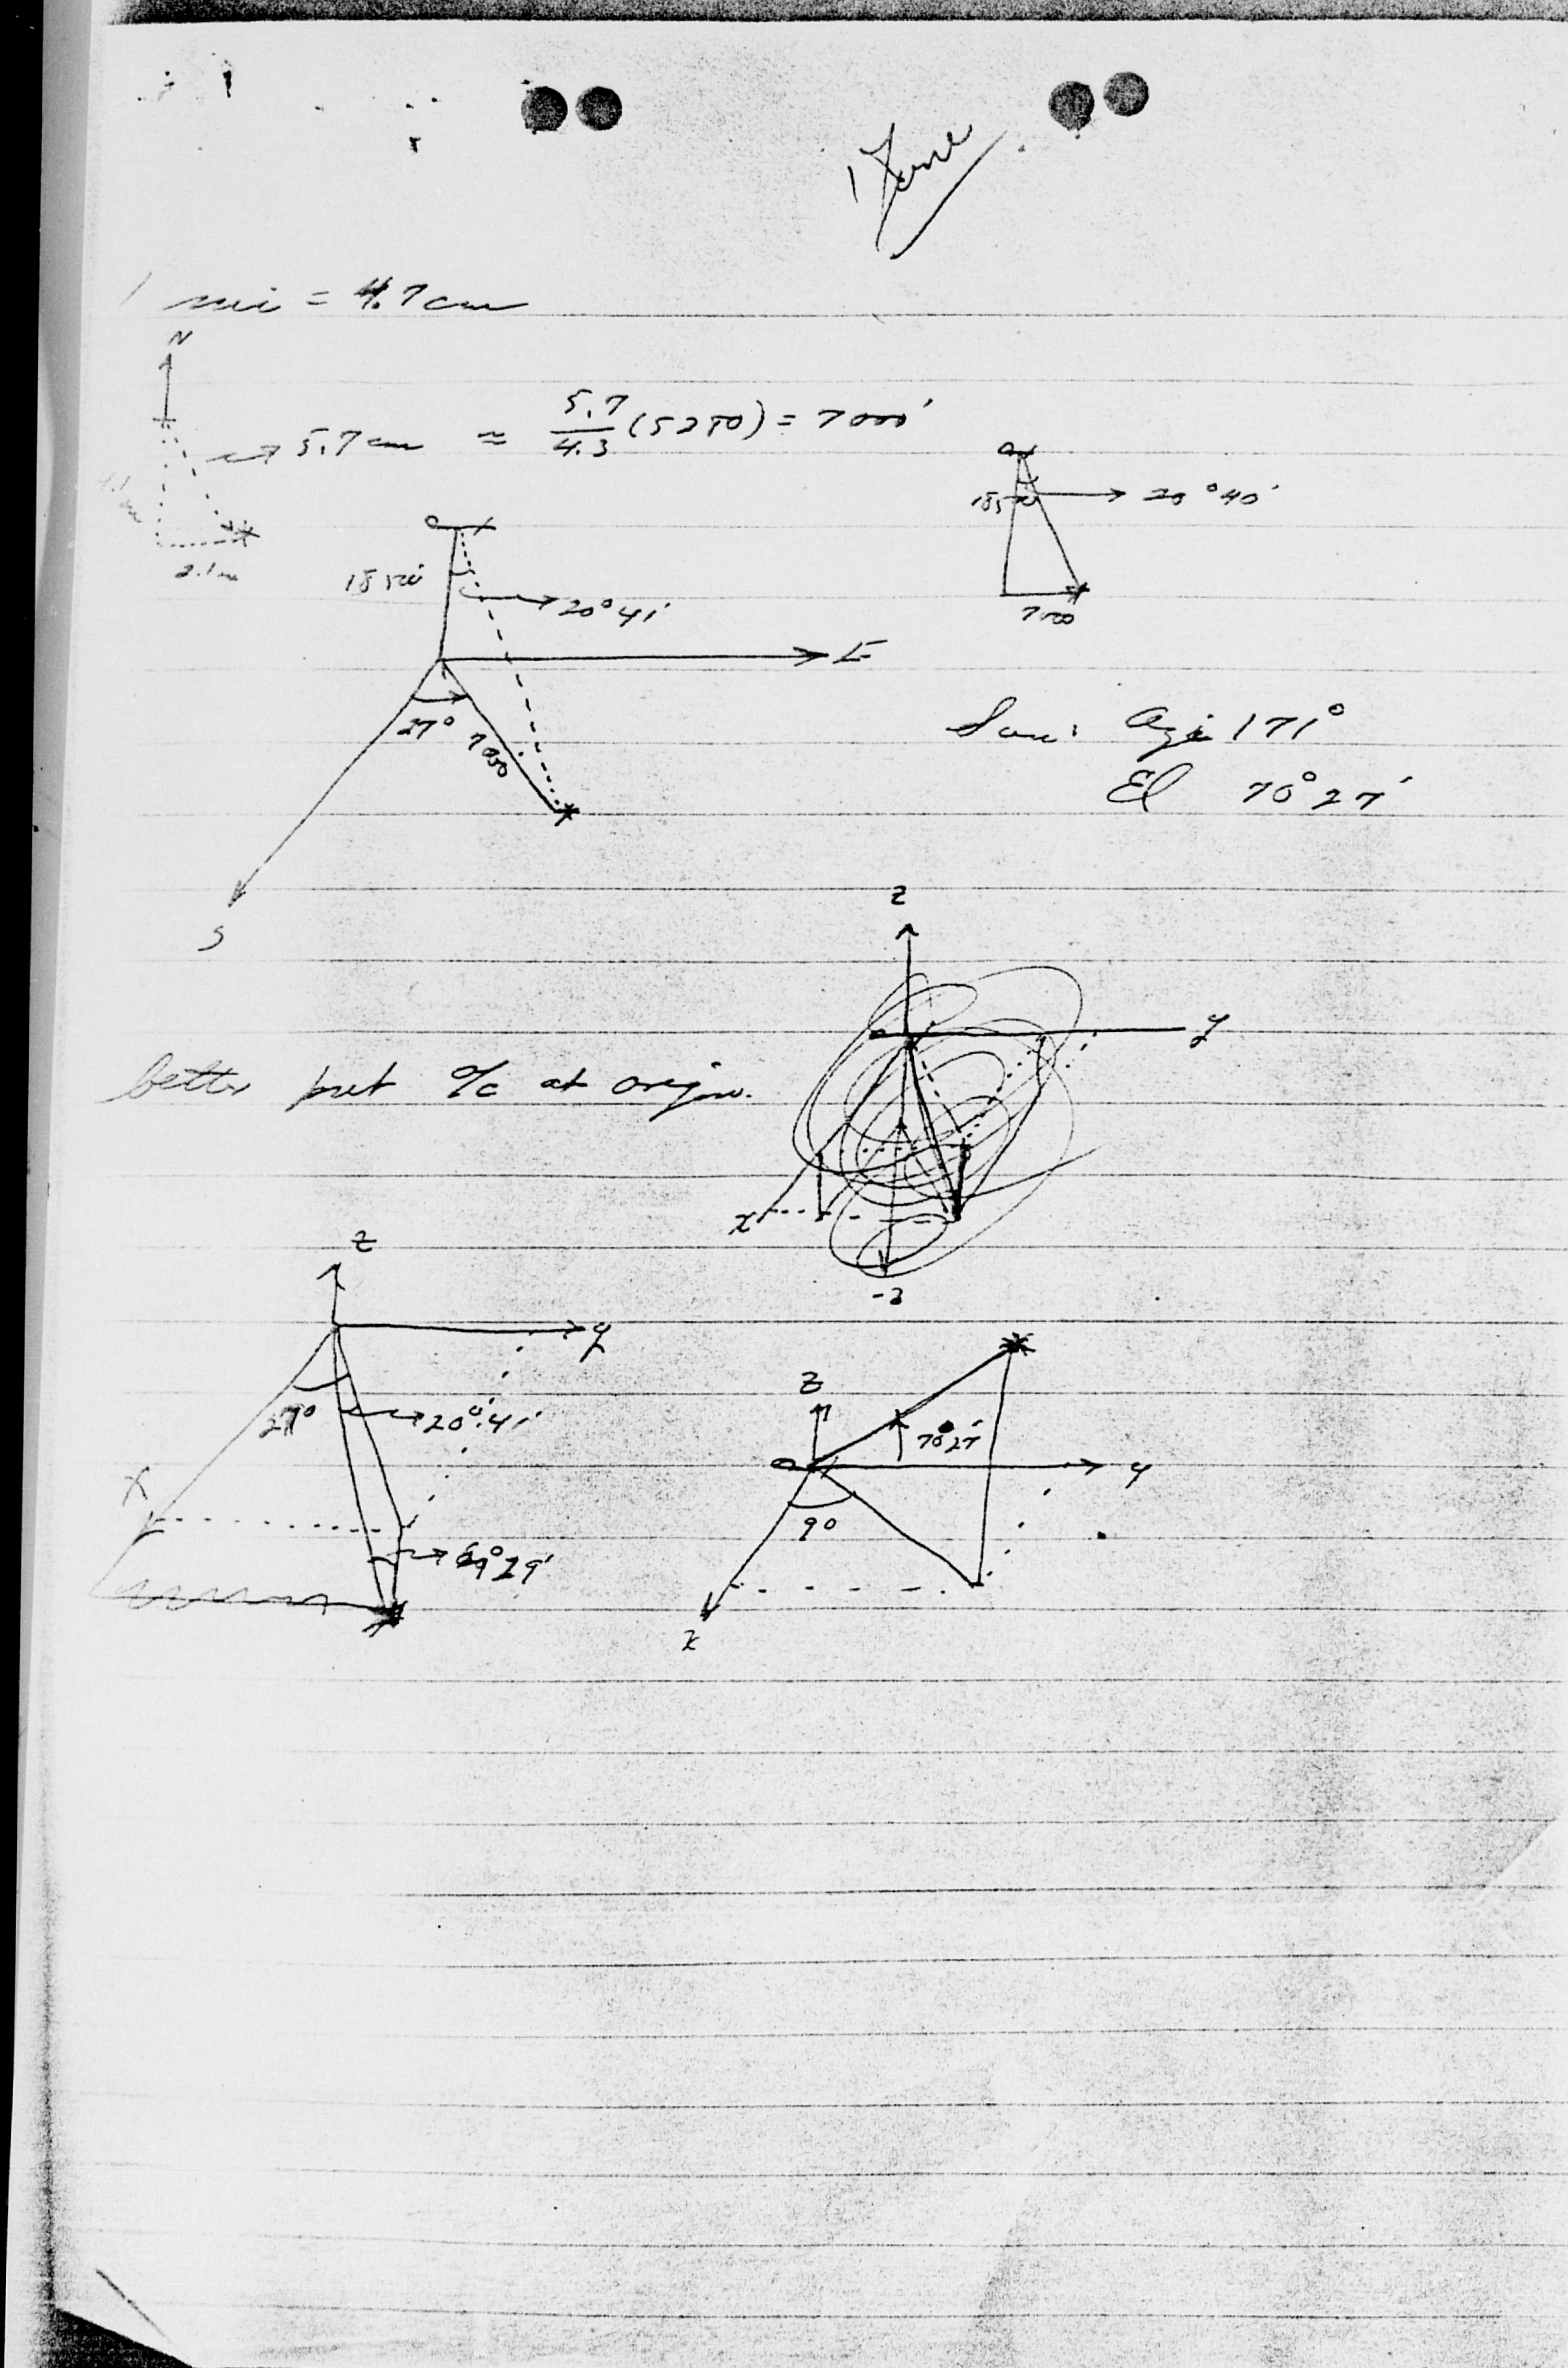 1 June
1 mi = 4.7 cm
N
→ 5.7 cm ≈ 5.7/4.3 (5280) = 7000'
2.1 cm
18500'
20°40'
7000
18500'
20°41'
E
27°
7000
S
Sun: Azi 171°
El 70°27'
z
y
better put a/c at origin.
x
-z
z
y
27°
20°41'
x
69°29'
z
70°27'
y
9°
x